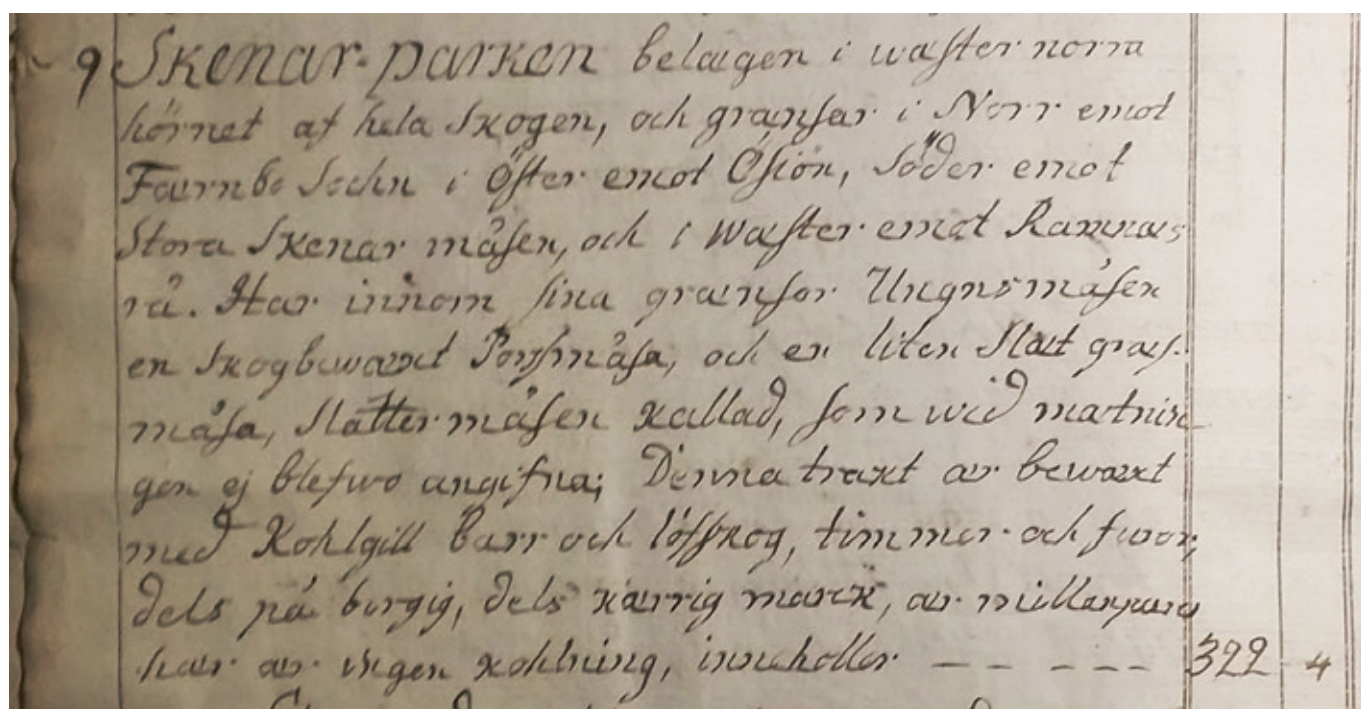 9 Skenar-parken belægen i wæster norra
hörnet af hela skogen, och grænsar i Norr emot
Færnbo Sochn i Öster emot Ösiön, Söder emot
Stora Skenar måsen, och i Wæster emot Ramnæs
rå. Har innom sina grænsor Ungnsmåsen
en skogbewæxt Porssmåsa, och en liten Slæt græs-
måsa, Slåtter måsen kallad, som wid mætnin-
gen ej blefwo angifna; Denna trakt ær bewæxt
med Kohlgill barr och löfskog, timmer och furor,
dels på bergig, dels kærrig marck, ær
hær ær ingen kohlning, inneholler – – – – – 322 4